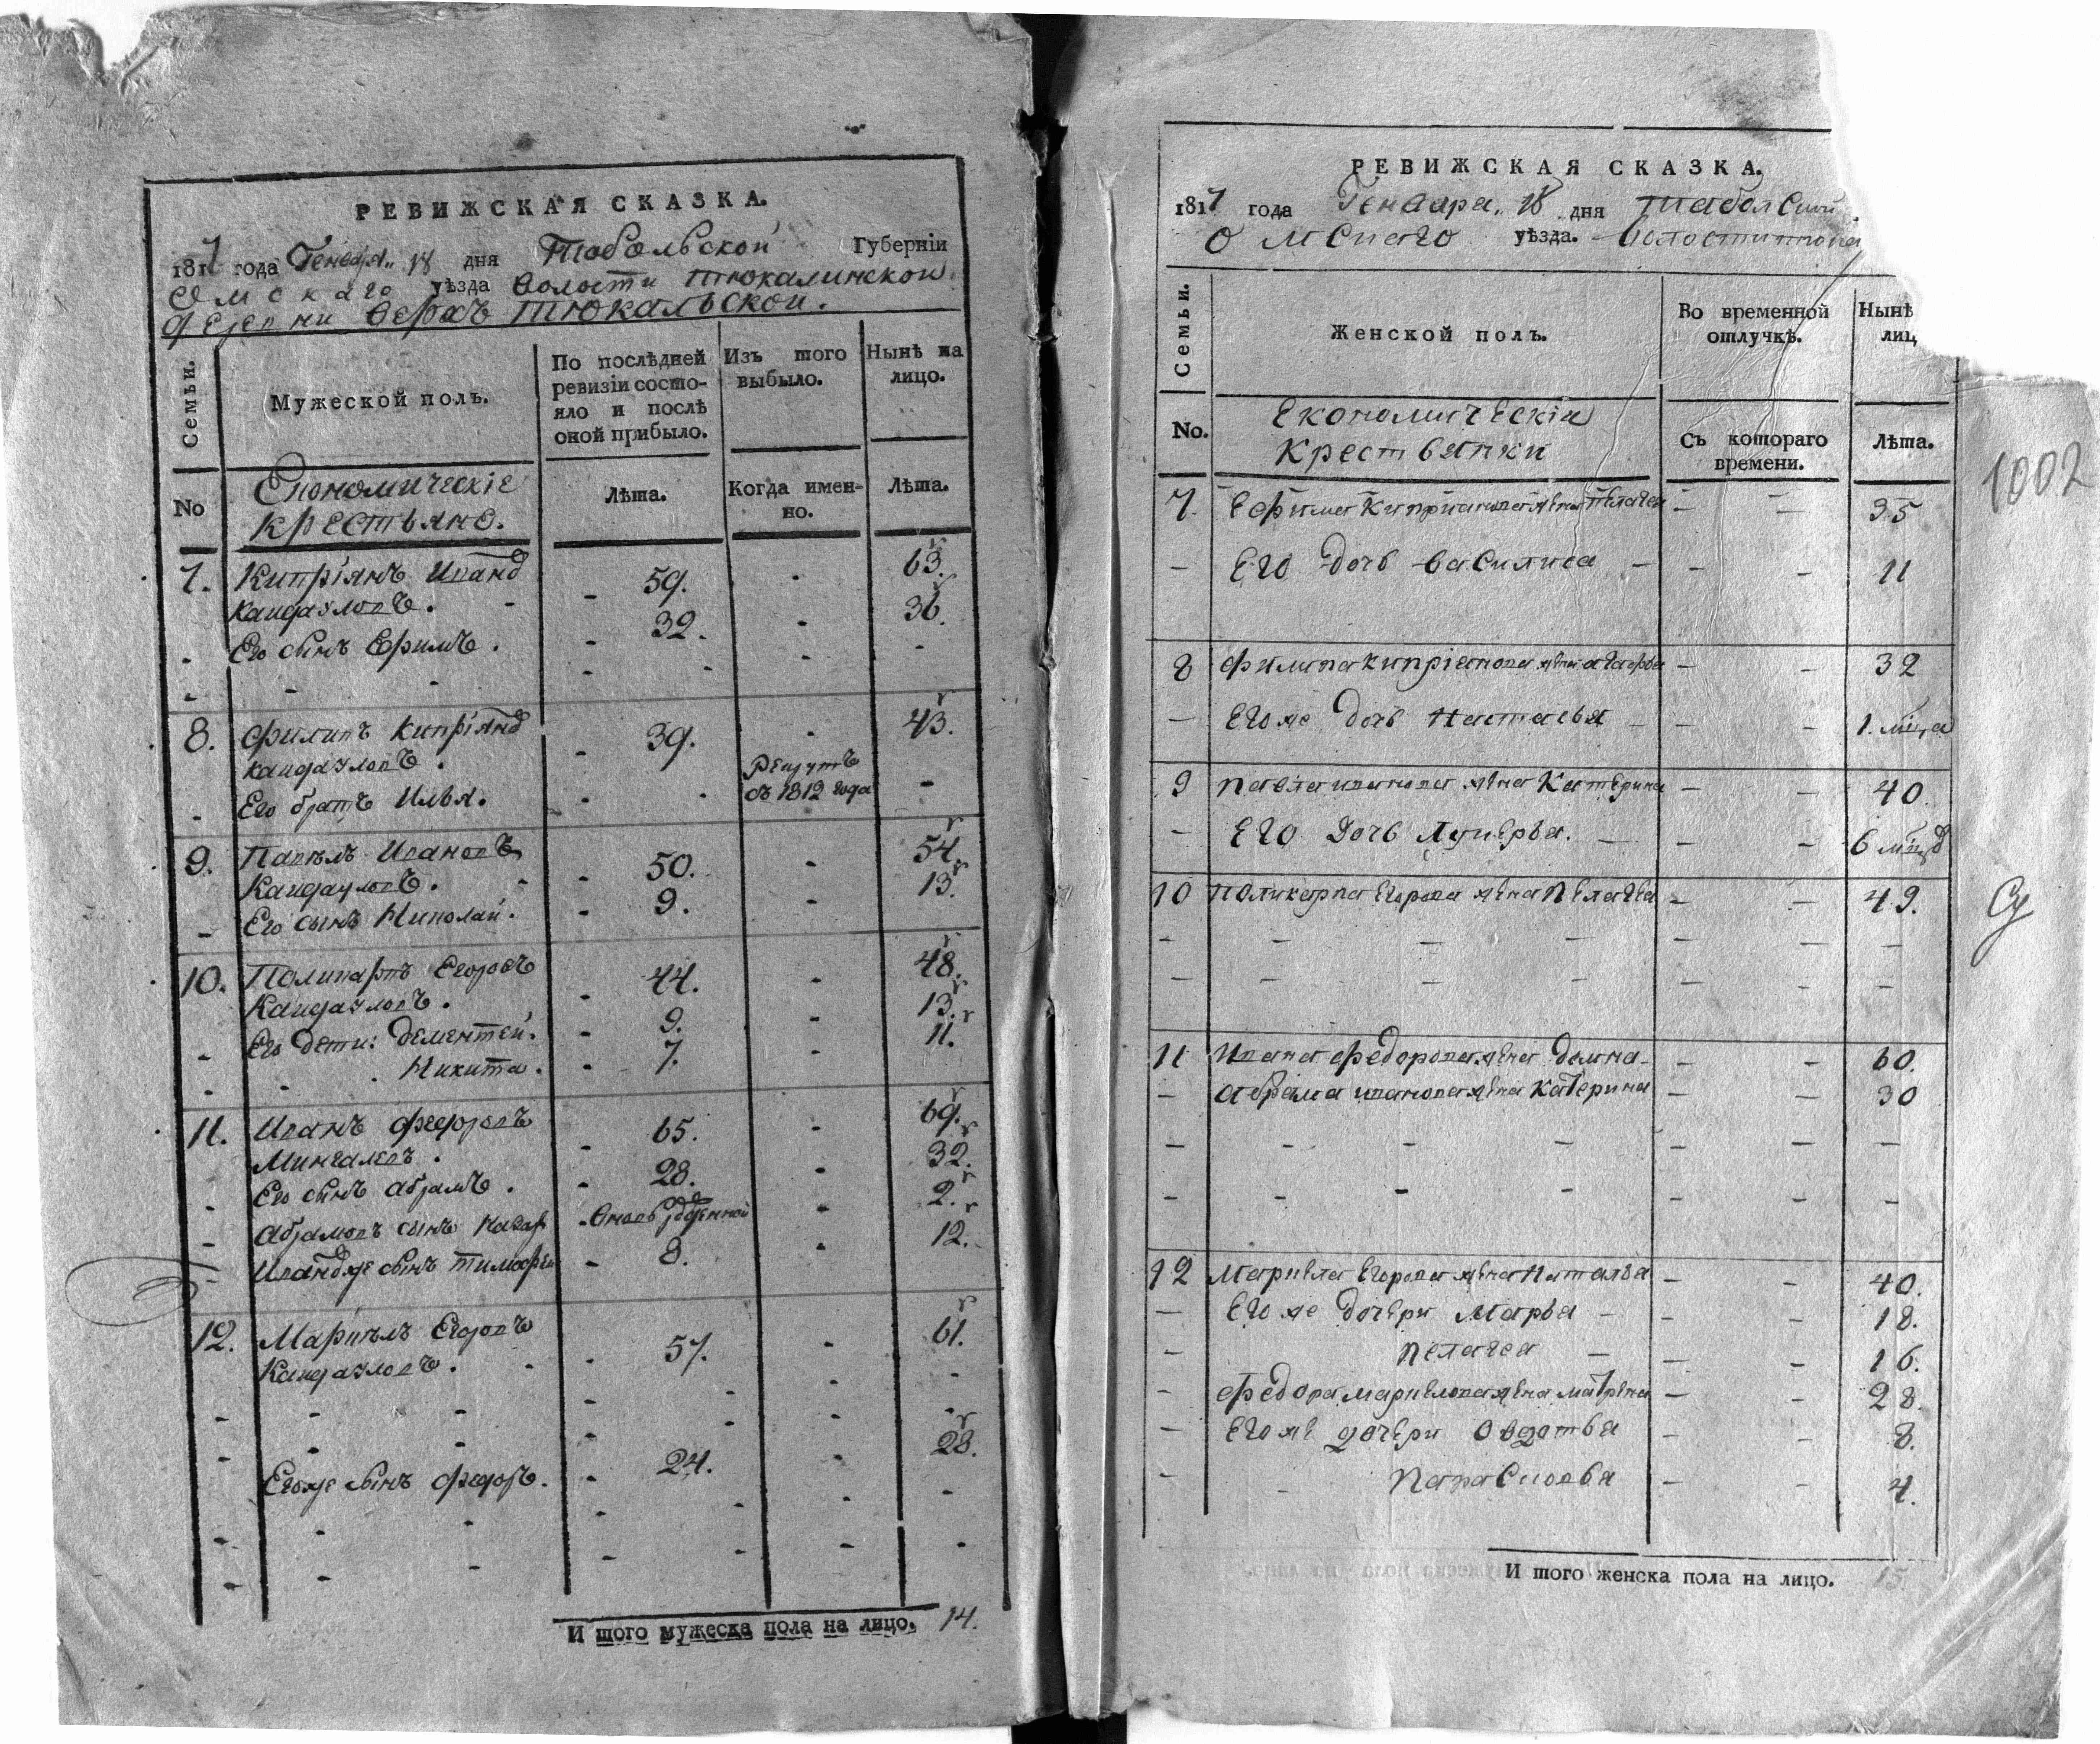 РЕВИЖСКАЯ СКАЗКА.
1817 года Генваря 18 дня Тобольской Губернiи
Омскаго уѣзда Волости Тюкалинской
Деревни Верхъ Тюкальской.
Семьи.
Мужеской полъ.
По послѣдней ревизiи состо-
яло и послѣ
оной прибыло.
Изъ того
выбыло.
Нынѣ на
лицо.
No
Економическiе
крестьяне.
Лѣта.
Когда имен-
но.
Лѣта.
7. Кипрiянъ Ивановъ 59. 63.
Кандауловъ.
Его сынъ Ефимъ. 32. 36.
8. Филипъ Кипрiяновъ 39. 43.
Кандауловъ.
Его братъ Илья. Рекрутъ
съ 1812 года
9. Павелъ Ивановъ 50. 54.
Кандауловъ.
Его сынъ Николай. 9. 13.
10. Поликарпъ Егоровъ 44. 48.
Кандауловъ.
Его дети: Дементей. 9. 13.
Никита. 7. 11.
11. Иванъ Федоровъ 65. 69.
Мингалевъ.
Его сынъ Абрамъ. 28. 32.
Абрамовъ сынъ Назар Вновь рожденной 2.
Ивановъ же сынъ Тимофей 8. 12.
12. Маркелъ Егоровъ 57. 61.
Кандауловъ.
Его же сынъ Федоръ. 24. 28.
И того мужеска пола на лицо. 14.
РЕВИЖСКАЯ СКАЗКА.
1817 года Генваря 18 дня Табольской
Омскаго уѣзда. Волости
Семьи.
Женской полъ.
Во временной
отлучкѣ.
Нынѣ
лиц
No.
Економическiя
Крестьянки
Съ котораго
времени.
Лѣта.
1002
7. Ефима Кипрiянова жена Пелагея 35
Его дочь Василиса 11
8 Филипа Кипрiянова жена Агафья 32
Его же дочь Настасья 1. мѣца
9 Павла Иванова жена Катерина 40
Его дочь Лукерья. 6 мѣцов
10 Поликарпа Егорова жена Пелагея 49.
11 Ивана Федорова жена Домна 60.
Абрама Иванова жена Катерина 30
12 Маркела Егорова жена Наталья 40.
Его же дочери Марья 18.
Пелагея 16.
Федора Маркелова жена Матрена 28.
Его же дочери Овдотья 8.
Парасковья 4.
И того женска пола на лицо. 15.